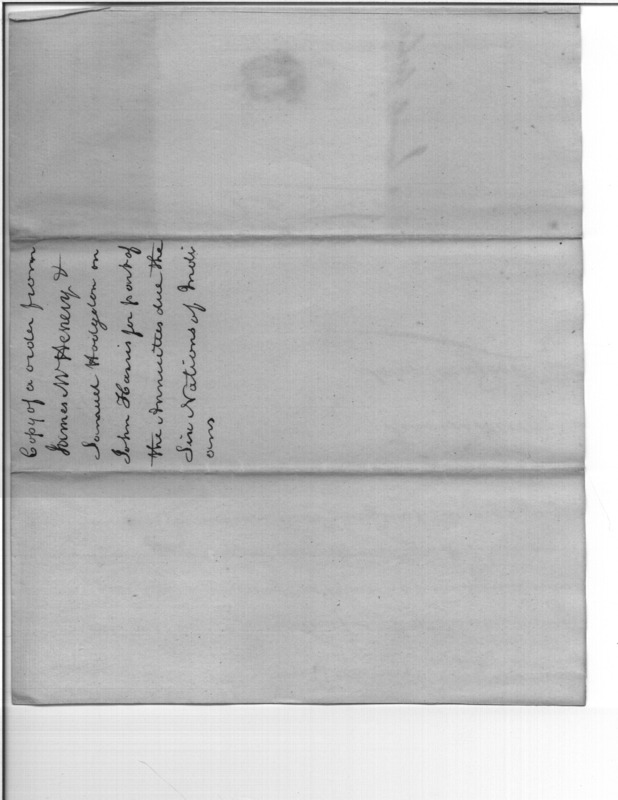 Copy of a order from
James McHenry &
Samuel Hodgdon on
John Harris for part of
the Annuities due the
Six Nations of Indi
ans